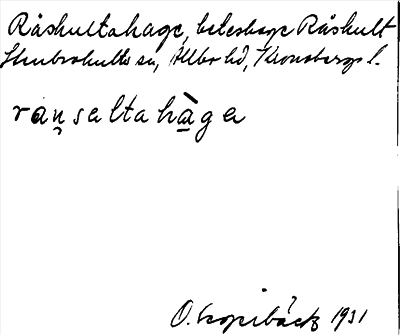 Råshultahage, beteshage Råshult
Stenbrohults sn, Allbo hd, Kronobergs l.
ran̥saltahàga
O. 1931